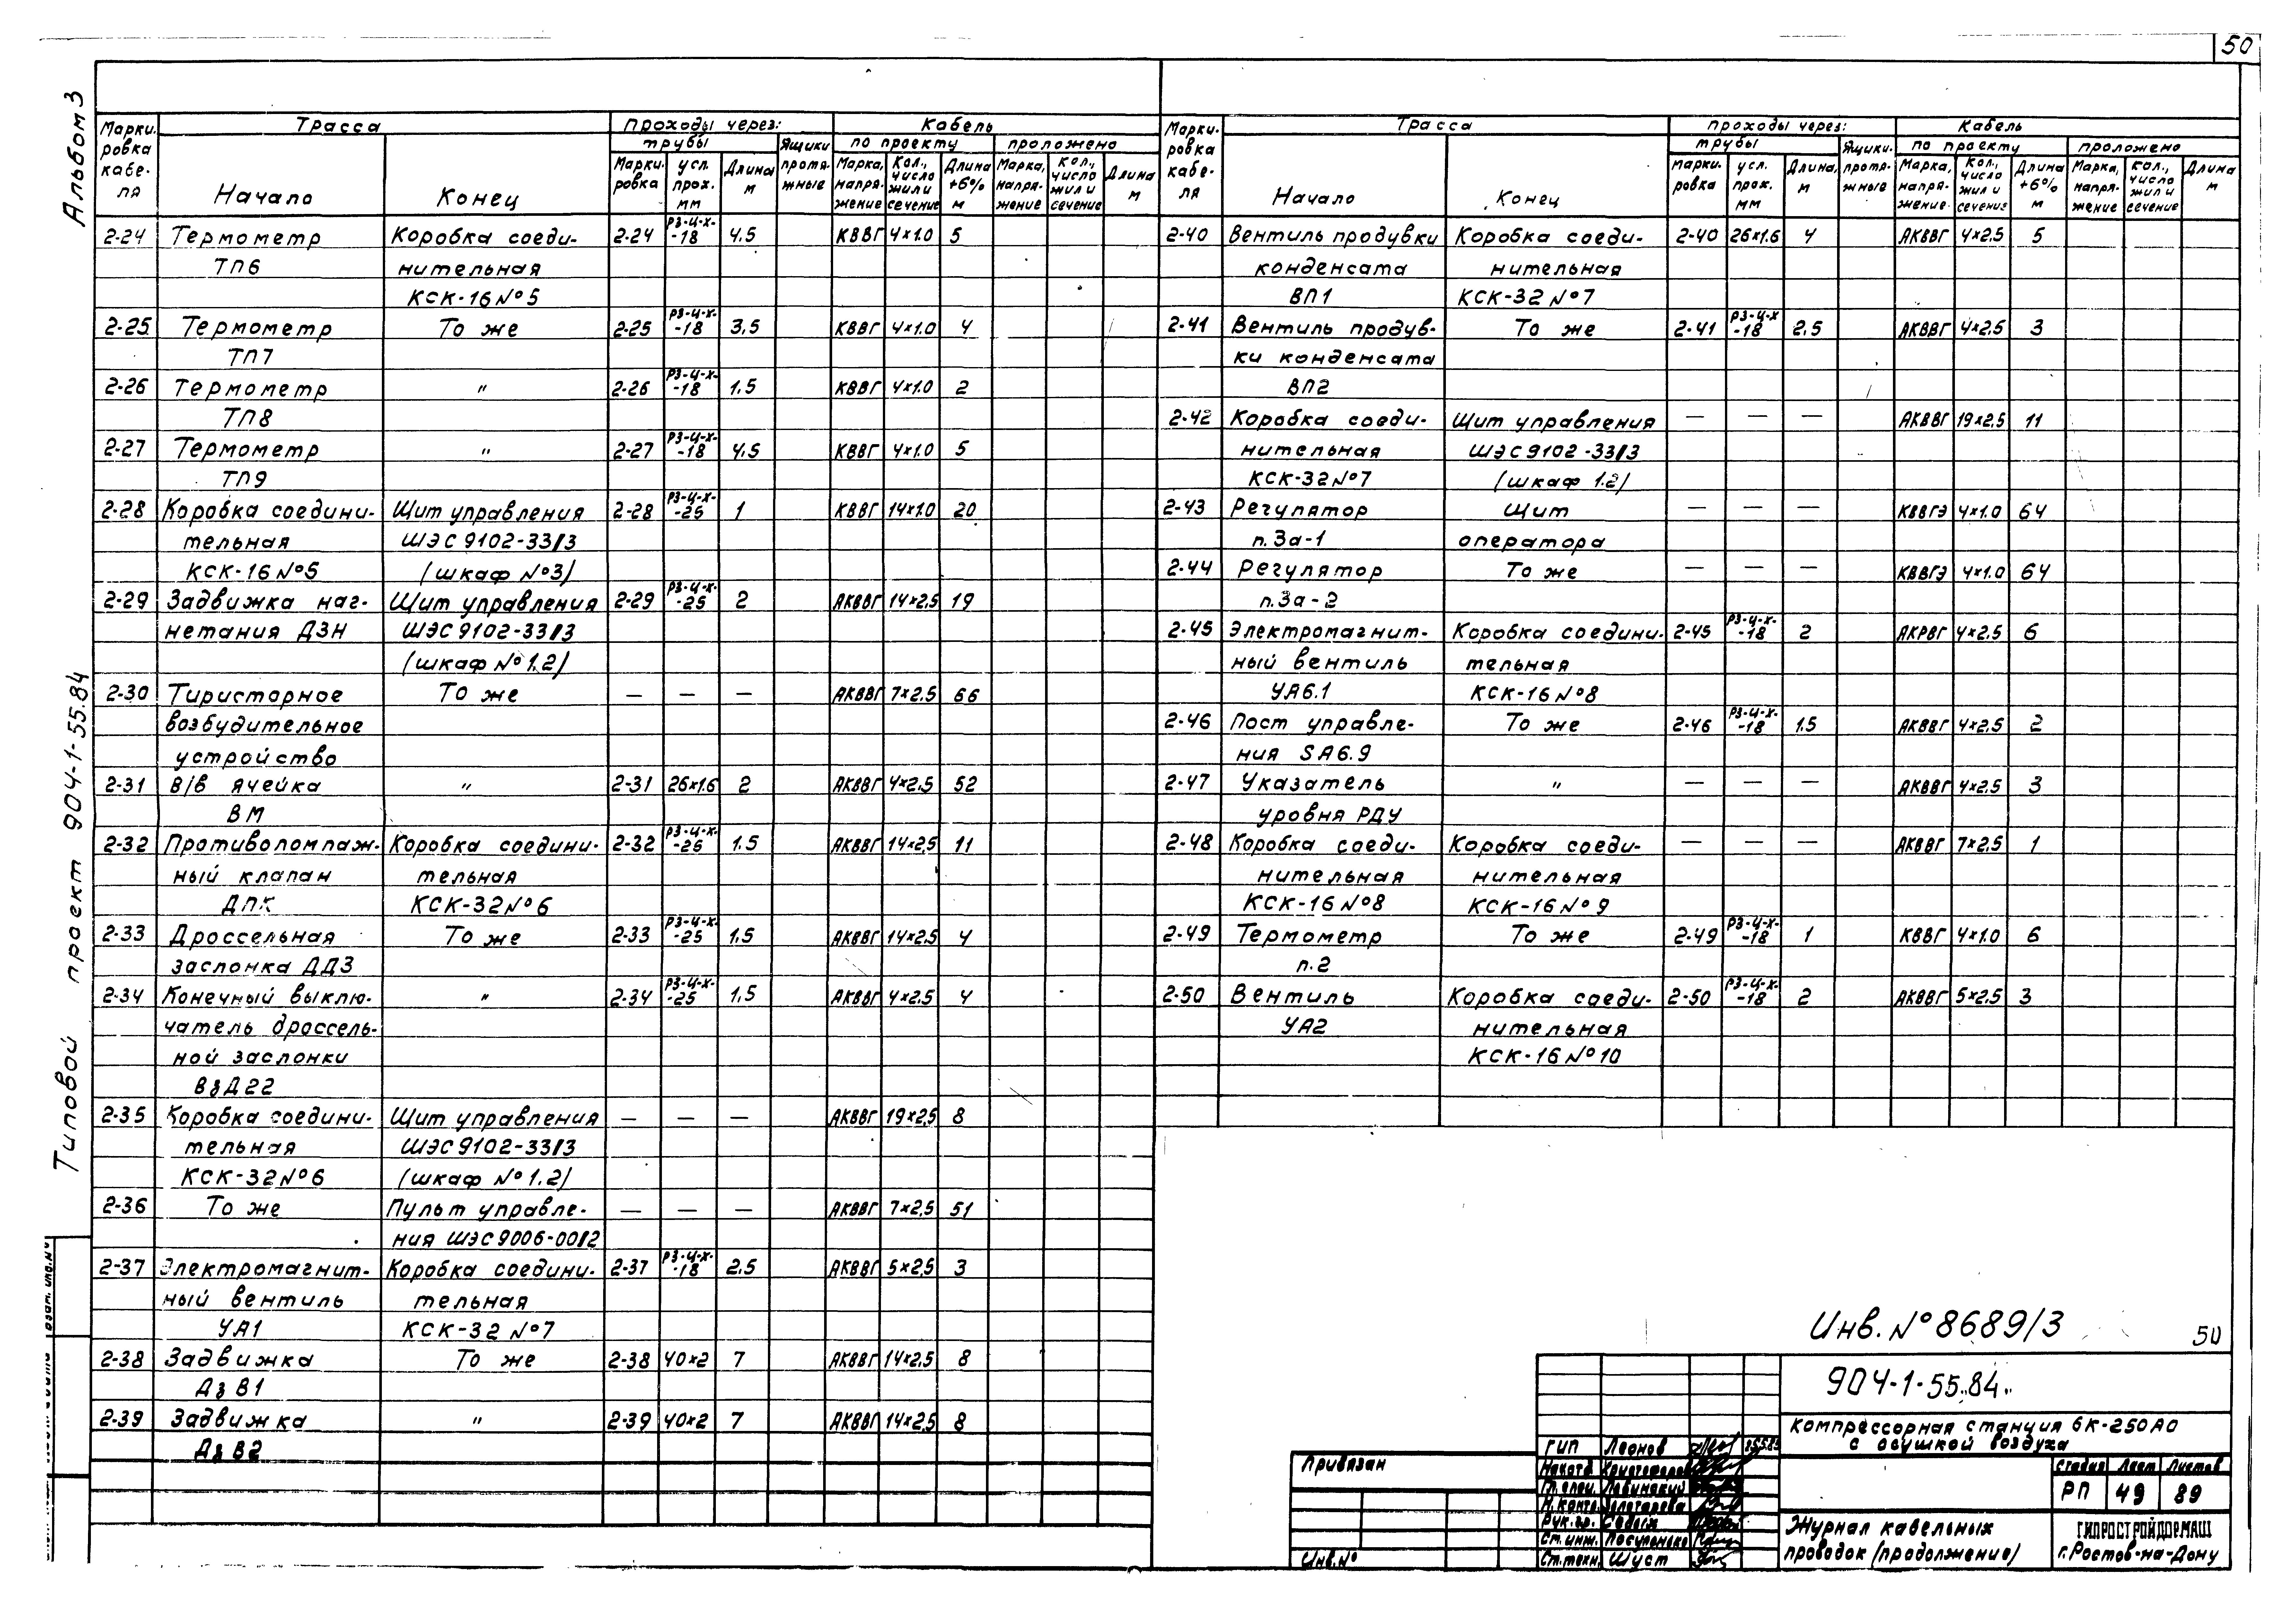 50
Альбом 3
Типовой проект 904-1-55.84
Марки-ровка кабе-ля | Трасса | проходы через: | Кабель
трубы | Ящики протя-жные | по проекту | проложено
Начало | Конец | Марки-ровка | усл. прох. мм | Длина м | Марка, напря-жение | Кол., число жил и сечение | Длина +6% м | Марка, напря-жение | кол., число жил и сечение | Длина м
2-24 Термометр Коробка соеди- 2-24 РЗ-Ц-Х--18 4,5 КВВГ 4×1.0 5
ТП6 нительная
КСК-16 №5
2-25 Термометр То же 2-25 РЗ-Ц-Х--18 3,5 КВВГ 4×1.0 4
ТП7
2-26 Термометр " 2-26 РЗ-Ц-Х--18 1,5 КВВГ 4×1.0 2
ТП8
2-27 Термометр " 2-27 РЗ-Ц-Х--18 4,5 КВВГ 4×1.0 5
ТП9
2-28 Коробка соедини- Щит управления 2-28 РЗ-Ц-Х--25 1 КВВГ 14×1.0 20
тельная ШЭС 9102-33/3
КСК-16 №5 (шкаф №3)
2-29 Задвижка наг- Щит управления 2-29 РЗ-Ц-Х--25 2 АКВВГ 14×2,5 19
нетания ДЗН ШЭС 9102-33/3
(шкаф №1.2)
2-30 Тиристорное То же — — — АКВВГ 7×2,5 66
возбудительное
устройство
2-31 В/в ячейка " 2-31 26×1.6 2 АКВВГ 4×2,5 52
ВМ
2-32 Противопомпаж- Коробка соедини- 2-32 РЗ-Ц-Х--25 1.5 АКВВГ 14×2,5 11
ный клапан тельная
ДПК КСК-32 №6
2-33 Дроссельная То же 2-33 РЗ-Ц-Х--25 1,5 АКВВГ 14×2,5 4
заслонка ДДЗ
2-34 Конечный выклю- " 2-34 РЗ-Ц-Х--25 1,5 АКВВГ 4×2,5 4
чатель дроссель-
ной заслонки
ВзД22
2-35 Коробка соедини- Щит управления — — — АКВВГ 19×2,5 8
тельная ШЭС 9102-33/3
КСК-32 №6 (шкаф №1.2)
2-36 То же Пульт управле- — — — АКВВГ 7×2,5 51
ния ШЭС 9006-00/2
2-37 Электромагнит- Коробка соедини- 2-37 РЗ-Ц-Х--18 2,5 АКВВГ 5×2,5 3
ный вентиль тельная
УА1 КСК-32 №7
2-38 Задвижка То же 2-38 40×2 7 АКВВГ 14×2,5 8
Дз В1
2-39 Задвижка " 2-39 40×2 7 АКВВГ 14×2,5 8
Дз В2
Марки-ровка кабе-ля | Трасса | проходы через: | Кабель
трубы | Ящики протя-жные | по проекту | проложено
Начало | Конец | Марки-ровка | усл. прох. мм | Длина, м | Марка, напря-жение | Кол., число жил и сечения | Длина +6% м | Марка, напря-жение | кол., число жил и сечение | Длина м
2-40 Вентиль продувки Коробка соеди- 2-40 26×1.6 4 АКВВГ 4×2,5 5
конденсата нительная
ВП1 КСК-32 №7
2-41 Вентиль продув- То же 2-41 РЗ-Ц-Х-18 2.5 АКВВГ 4×2,5 3
ки конденсата
ВП2
2-42 Коробка соеди- Щит управления — — — АКВВГ 19×2,5 11
нительная ШЭС 9102-33/3
КСК-32 №7 (шкаф 1.2)
2-43 Регулятор Щит — — — КВВГЭ 4×1.0 64
п.3а-1 оператора
2-44 Регулятор То же — — — КВВГЭ 4×1.0 64
п.3а-2
2-45 Электромагнит- Коробка соедини- 2-45 РЗ-Ц-Х--18 2 АКРВГ 4×2,5 6
ный вентиль тельная
УА6.1 КСК-16 №8
2-46 Пост управле- То же 2-46 РЗ-Ц-Х--18 1.5 АКВВГ 4×2.5 2
ния SA6.9
2-47 Указатель " — — — АКВВГ 4×2.5 3
уровня РДУ
2-48 Коробка соеди- Коробка соеди- — — — АКВВГ 7×2,5 1
нительная нительная
КСК-16 №8 КСК-16 №9
2-49 Термометр То же 2-49 РЗ-Ц-Х--18 1 КВВГ 4×1.0 6
п.2
2-50 Вентиль Коробка соеди- 2-50 РЗ-Ц-Х--18 2 АКВВГ 5×2.5 3
УА2 нительная
КСК-16 №10
Инв. № 8689/3
50
904-1-55.84
Компрессорная станция 6К-250А0
с осушкой воздуха
Стадия Лист Листов
РП 49 89
Журнал кабельных
проводок (продолжение)
ГИПРОСТРОЙДОРМАШ
г. Ростов-на-Дону
ГИП Леонов
Н.контр.
Рук.гр.
Ст.инж.
Ст.техн. Шуст
Привязан
Инв. №